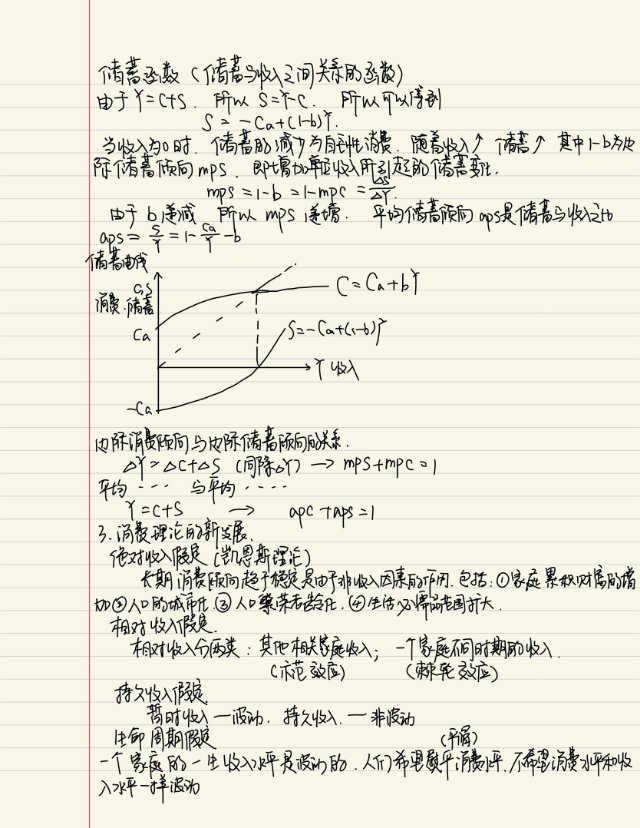 储蓄函数（储蓄与收入之间关系的函数）
由于 Y=C+S. 所以 S=Y-C. 所以可以得到
S = -Ca+(1-b)Y.
当收入为0时. 储蓄的减少为自发性消费. 随着收入↑ 储蓄↑ 其中1-b为边
际储蓄倾向mps. 即增加单位收入所引起的储蓄变化.
mps = 1-b = 1-mpc = ΔS/ΔY.
由于 b 递减 所以 mps 递增. 平均储蓄倾向 aps是储蓄与收入之比
aps = S/Y = 1-Ca/Y-b
储蓄曲线
C,S
消费.储蓄
C=Ca+bY
Ca
S=-Ca+(1-b)Y
Y 收入
-Ca
边际消费倾向与边际储蓄倾向的关系.
ΔY=ΔC+ΔS (同除ΔY) → mps+mpc=1
平均 ···· 与平均 ····
Y=C+S → apc+aps=1
3.消费理论的新发展.
绝对收入假定（凯恩斯理论）
长期消费倾向趋于稳定是由于非收入因素的作用. 包括: ①家庭累积财富的增
加②人口的城市化.③人口老龄化.④生活必需品范围扩大.
相对收入假定.
相对收入分两类：其他相关家庭收入； 一个家庭不同时期的收入.
（示范效应） （棘轮效应）
持久收入假定
暂时收入—波动. 持久收入.—非波动
生命周期假定 （平滑）
一个家庭的一生收入水平是波动的. 人们希望熨平消费水平.不希望消费水平和收
入水平一样波动